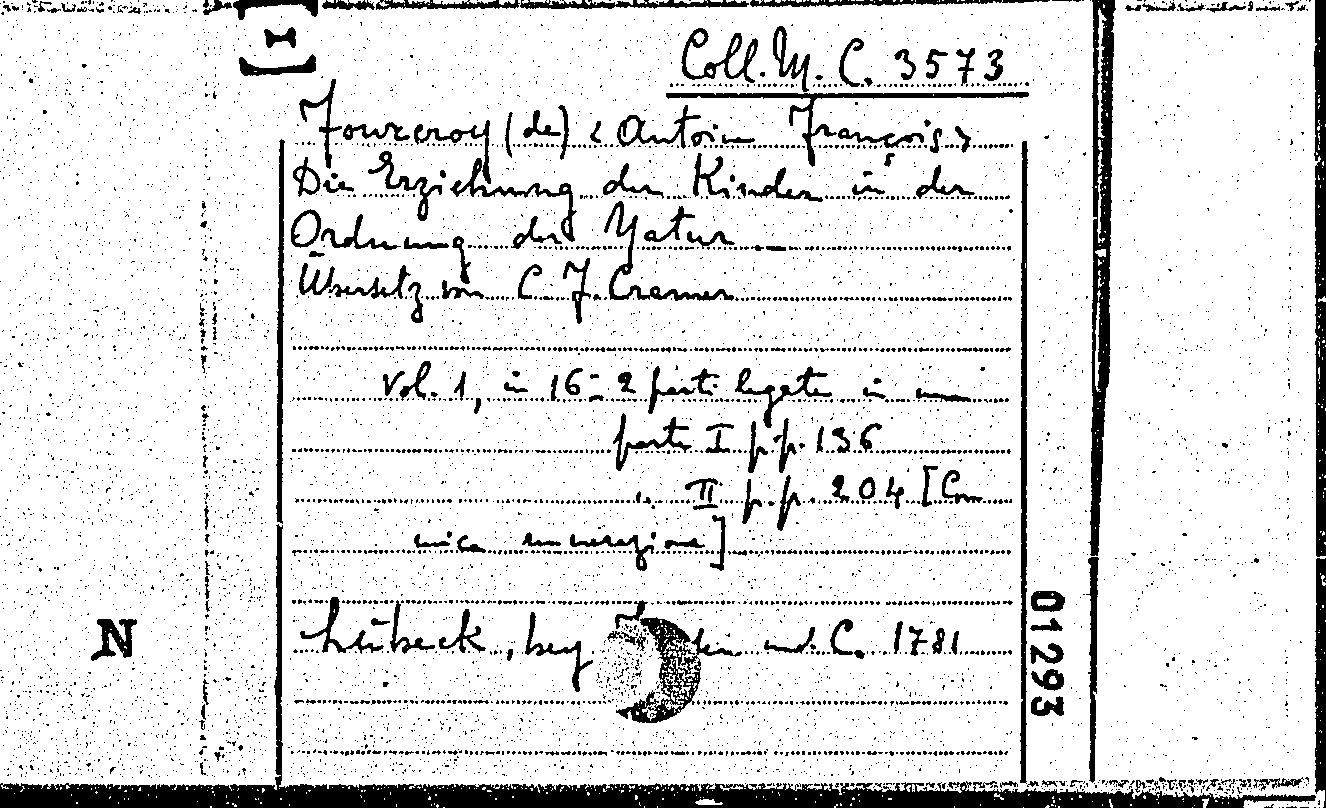 Coll. M. C. 3573
Fourcroy (de) < Antoine François >
Die Erziehung der Kinder in der
Ordnung der Natur. —
Übersetz von C. F. Cramer
Vol. 1, in 16= 2 parti legate in uno
parte I p.p. 136
" II p.p. 204 [Con
unica numerazione]
Lübeck, bey und C. 1781
01293
N